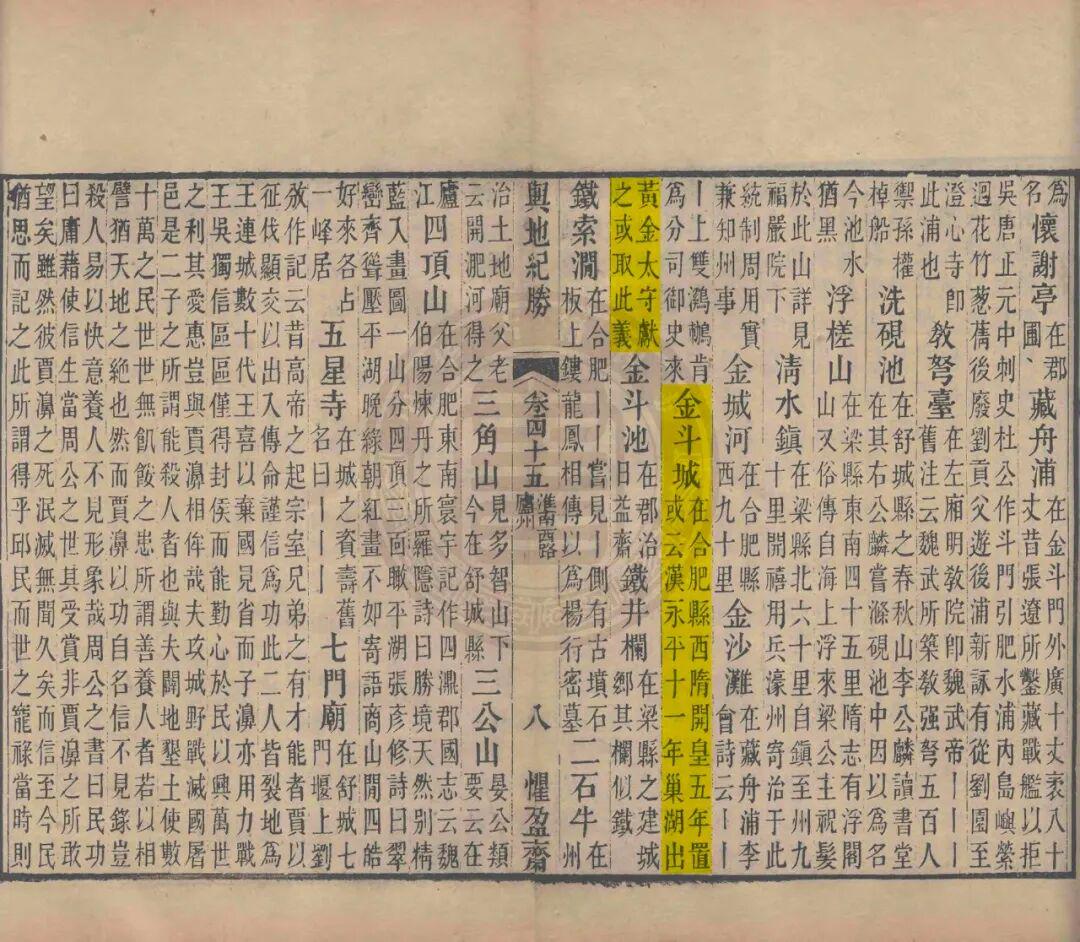 為名 懷謝亭 在郡圃、 藏舟浦 在金斗門外廣十丈袤八十丈昔張遼所鑿藏戰艦以拒
吳唐正元中刺史杜公作斗門引肥水浦內島嶼縈迴花竹蔥蒨後廢劉貢父遊後浦新詠有從劉園至
澄心寺即此浦也 教弩臺 在左廂明教院即魏武帝丨丨舊注云魏武所築教强弩五百人
禦孫權棹船 洗硯池 在舒城縣之春秋山李公麟讀書堂在其右公麟嘗滌硯池中因以為名
今池水猶黑 浮槎山 在梁縣東南四十五里隋志有浮闍山又俗傳自海上浮來梁公主祝髮
於此山詳見福嚴院下 清水鎮 在梁縣北六十里自鎮至州九十里開禧用兵濠州寄治于此
統制周用實兼知州事 金城河 在合肥縣西九十里 金沙灘 在藏舟浦李曾詩云丨丨
丨上雙鸂鶒肯為分司御史來 金斗城 在合肥縣西隋開皇五年置或云漢永平十一年巢湖出
黃金太守獻之或取此義 金斗池 在郡治日益齋 鐵井欄 在梁縣之建城鄉其欄似鐵
鐵索澗 在合肥丨丨嘗見丨側有古墳石板上鏤龍鳳相傳以為楊行密墓 二石牛 在州
輿地紀勝 卷四十五 淮南西路 廬州 八 懼盈齋
治土地廟父老云開淝河得之 三角山 見多智山下今在舒城縣 三公山 晏公類要云在
廬江 四頂山 在合肥東南寰宇記作四鼎郡國志云魏伯陽煉丹之所羅隱詩曰勝境天然別精
藍入畫圖一山分四頂三面瞰平湖張彥修詩曰翠巒齊聳壓平湖晚綠朝紅畫不如寄語商山閒四皓
好來各占一峰居 五星寺 在城之資壽舊名曰丨丨丨 七門廟 在舒城七門堰上劉
攽作記云昔高帝之起宗室兄弟之有才能者賈以征伐顯交以出入傳命謹信為功此二人皆裂地為
王連城數十代王喜以棄國見省而子濞亦用力戰王吳獨信區區僅得封侯而能勤心於民以興萬世
之利其愛惠豈與賈濞相侔哉夫攻城野戰滅國屠邑是二子之所謂能殺人者也與夫闢地墾土使數
十萬之民世世無飢餒之患所謂善養人者若以相譬猶天地之絕也然而賈濞以功自名信不見錄豈
殺人易以快意養人不見形象哉周公之書曰民功曰庸藉使信生當周公之世其受賞非賈濞之所敢
望矣雖然彼賈濞之死泯滅無聞久矣而信至今民猶思而記之此所謂得乎邱民而世之寵祿當時則